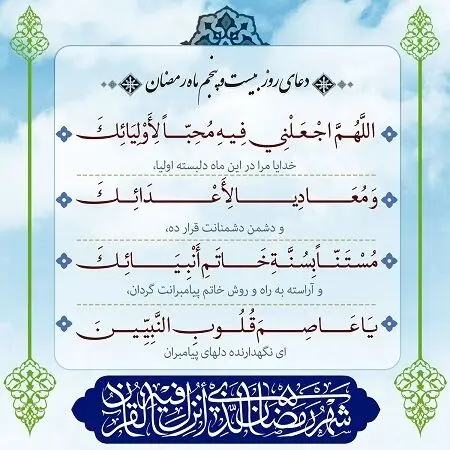 دعای روز بیست و پنجم ماه رمضان
اللَّهُمَّ اجْعَلْنِي فِيهِ مُحِبّاً لِأَوْلِيَائِكَ
خدایا مرا در این ماه دلبسته اولیا،
وَمُعَادِياً لِأَعْدَائِكَ
و دشمن دشمنانت قرار ده،
مُسْتَنّاً بِسُنَّةِ خَاتَمِ أَنْبِيَائِكَ
و آراسته به راه و روش خاتم پیامبرانت گردان،
يَا عَاصِمَ قُلُوبِ النَّبِيِّينَ
ای نگهدارنده دلهای پیامبران
شهر رمضان الذی أنزل فیه القرآن